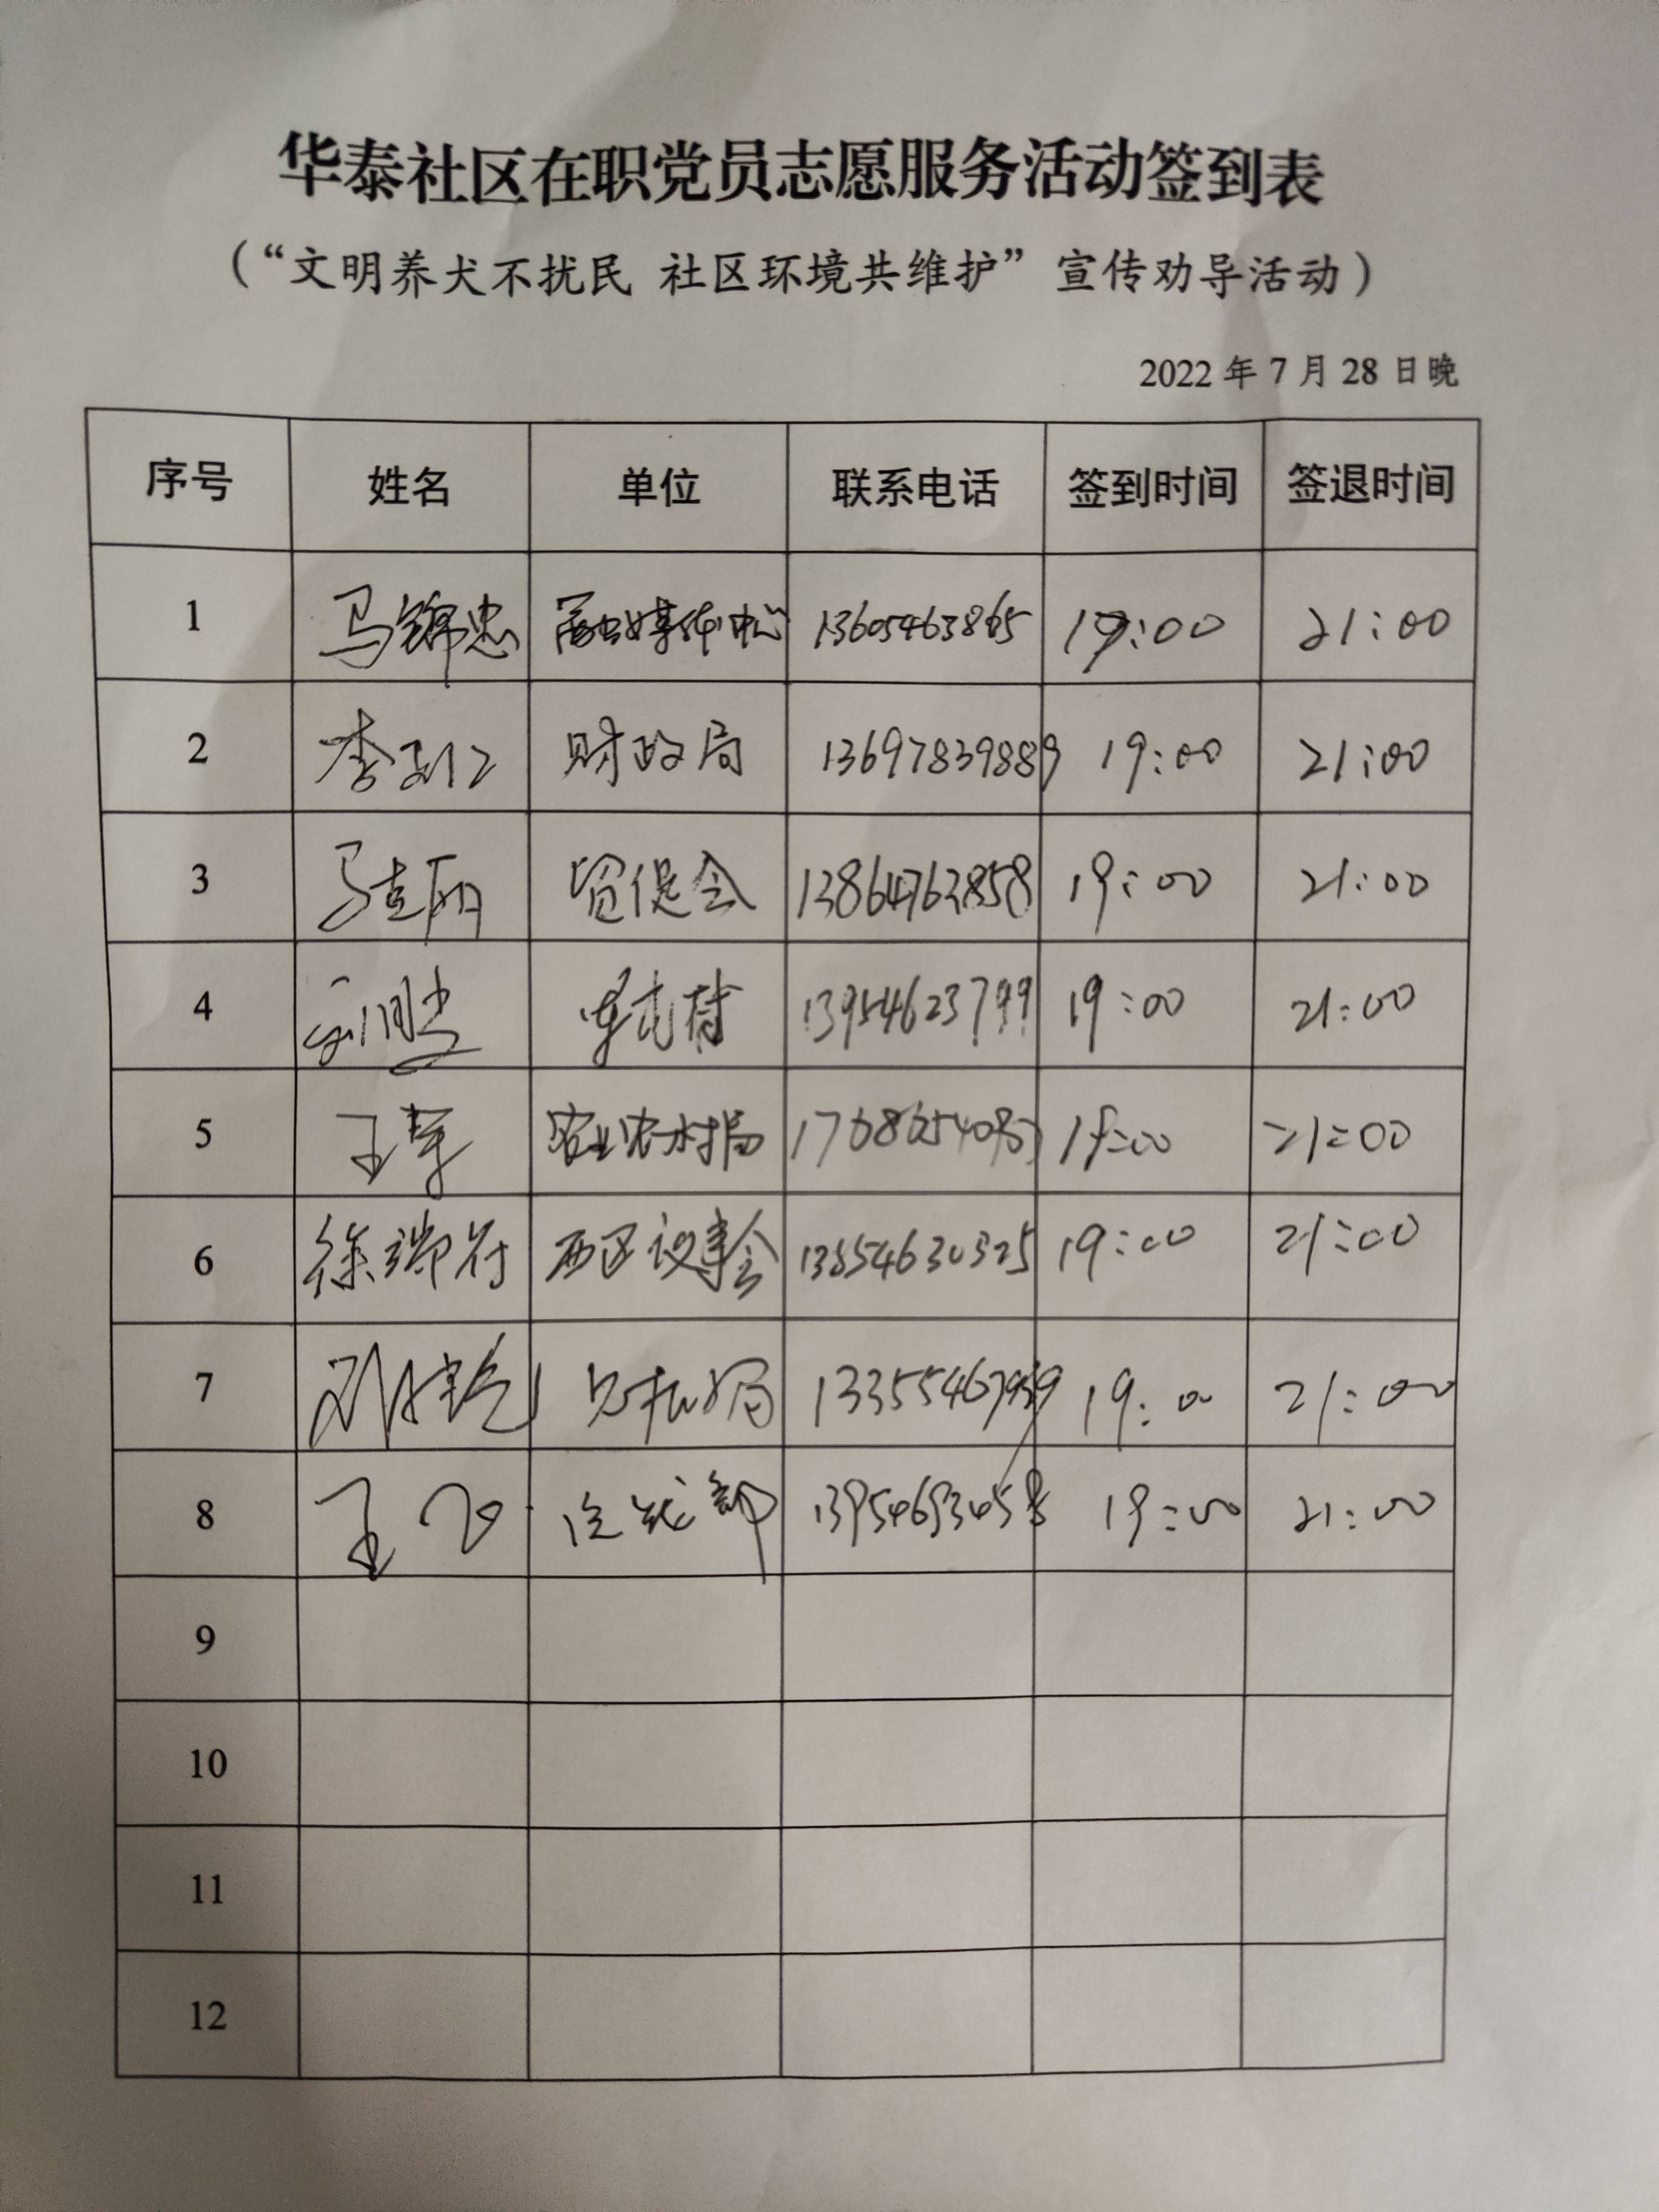 华泰社区在职党员志愿服务活动签到表
（“文明养犬不扰民 社区环境共维护”宣传劝导活动）
2022 年 7 月 28 日晚
序号 姓名 单位 联系电话 签到时间 签退时间
1 马锦忠 融媒体中心 13605463865 19:00 21:00
2 李 财政局 13697839889 19:00 21:00
3 马 贸促会 13864763858 19:00 21:00
4 13954623799 19:00 21:00
5 王军 农业农村局 19:00 21:00
6 徐瑞符 西区议事会 13854630325 19:00 21:00
7 19:00 21:00
8 王飞 统战部 19:00 21:00
9
10
11
12